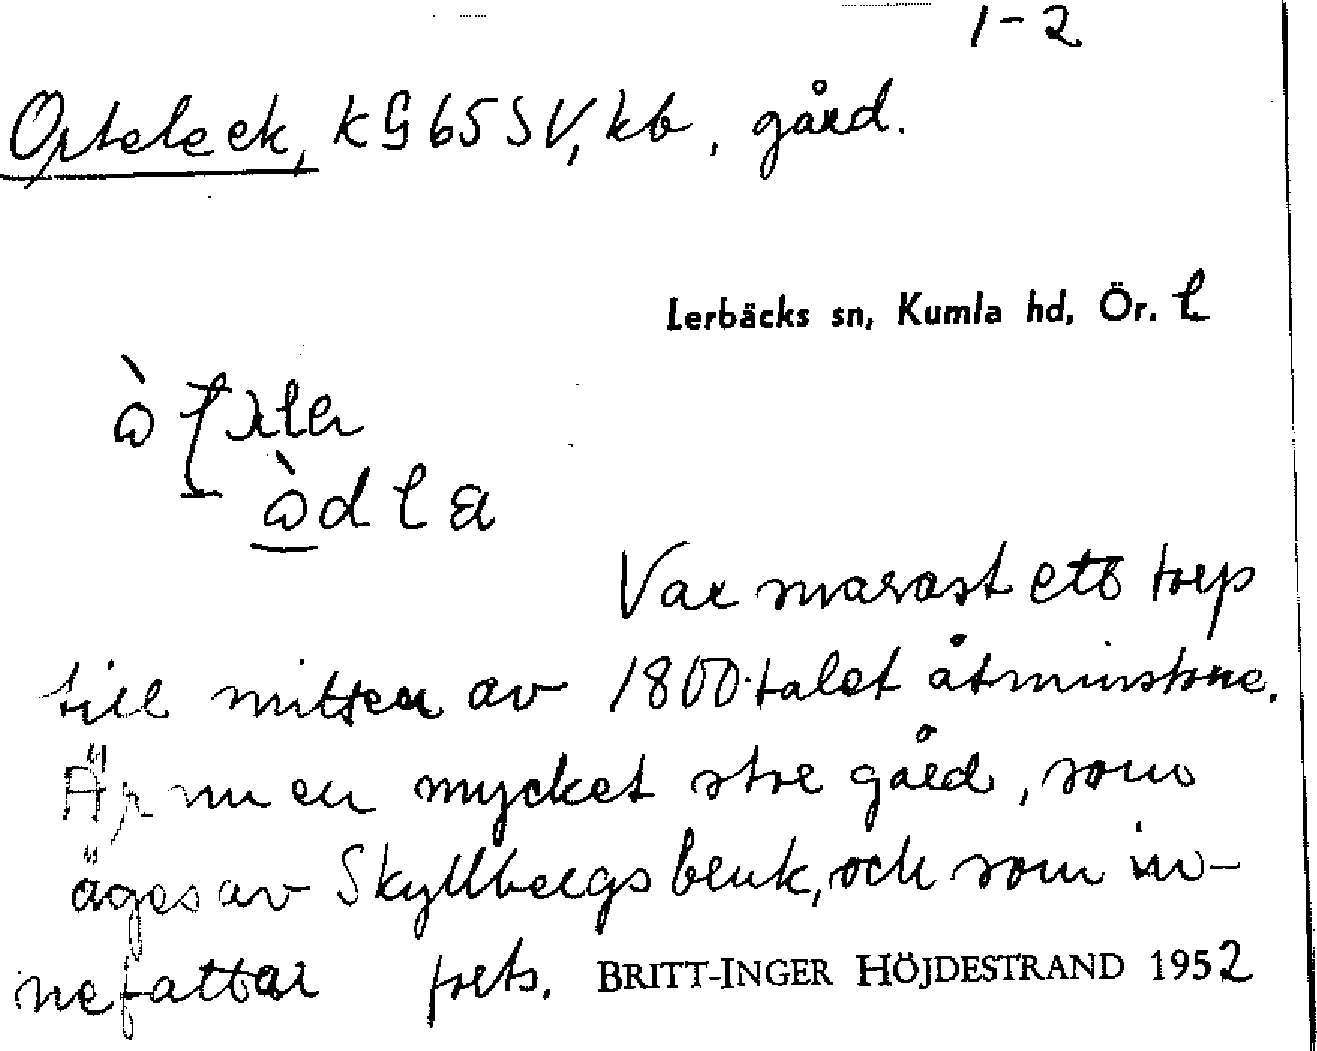 1-2
Opteleck, KG65SV, kb, gård.
Lerbäcks sn, Kumla hd, Ör. l
Var snarast ett torp
till mitten av 1800-talet åtminstone.
Är nu en mycket stor gård, som
äges av Skyllbergs bruk, och som in-
nefattar forts. BRITT-INGER HÖJDESTRAND 1952